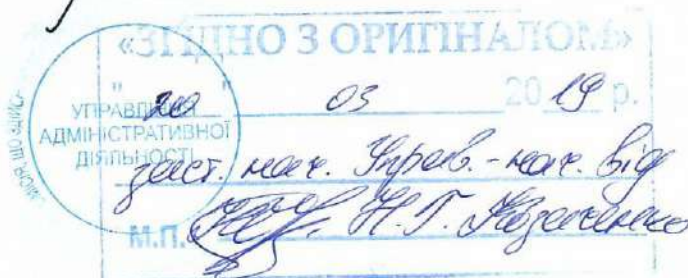 «ЗГІДНО З ОРИГІНАЛОМ»
" 20 " 03 20 19 р.
УПРАВЛІННЯ
АДМІНІСТРАТИВНОЇ
ДІЯЛЬНОСТІ
заст. нач. Управ. - нач. від
М.П. Н.Г. Козаченко